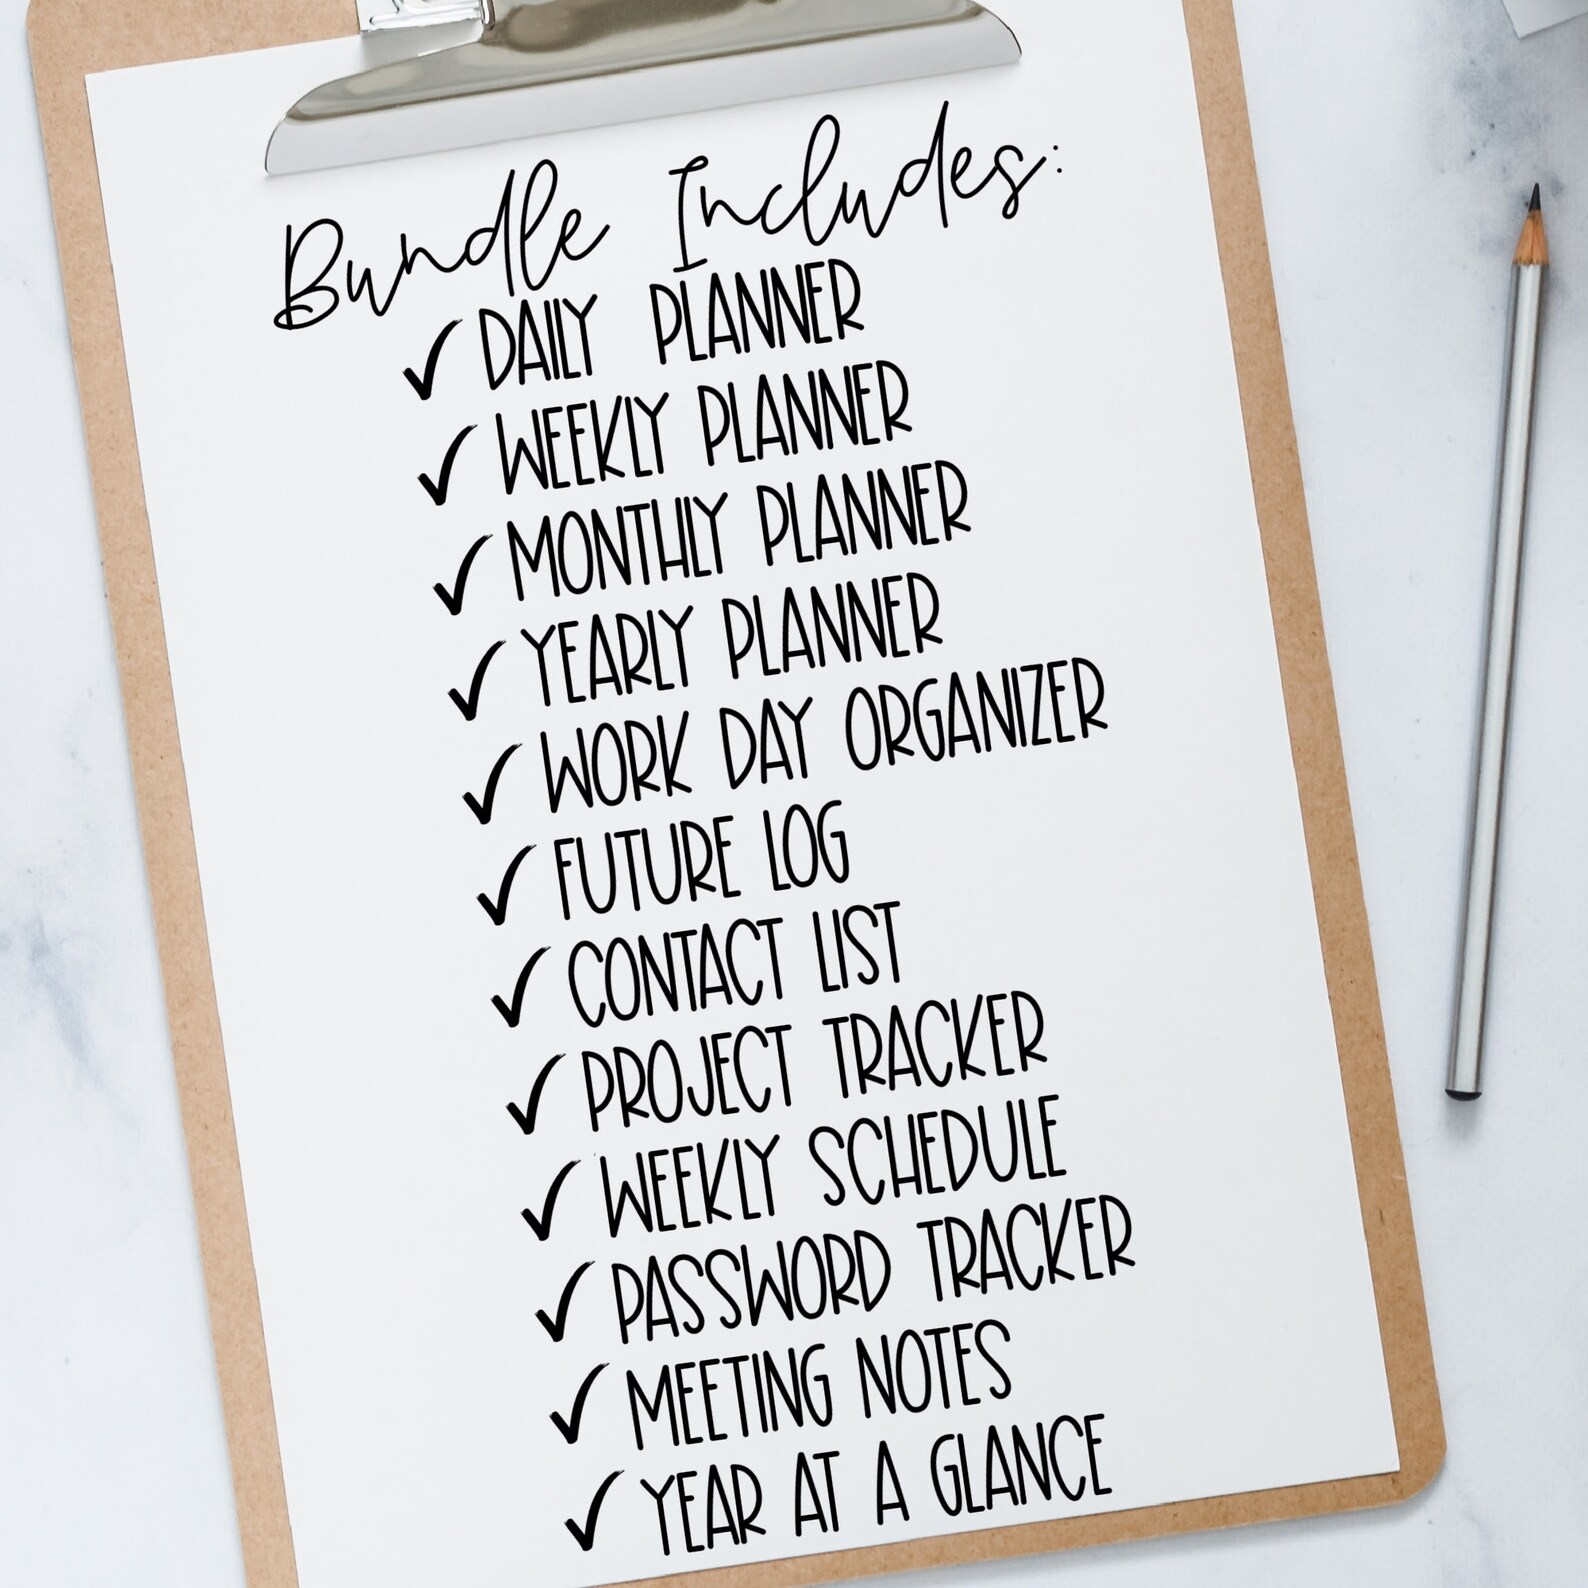 Bundle Includes:
✓ DAILY PLANNER
✓ WEEKLY PLANNER
✓ MONTHLY PLANNER
✓ YEARLY PLANNER
✓ WORK DAY ORGANIZER
✓ FUTURE LOG
✓ CONTACT LIST
✓ PROJECT TRACKER
✓ WEEKLY SCHEDULE
✓ PASSWORD TRACKER
✓ MEETING NOTES
✓ YEAR AT A GLANCE